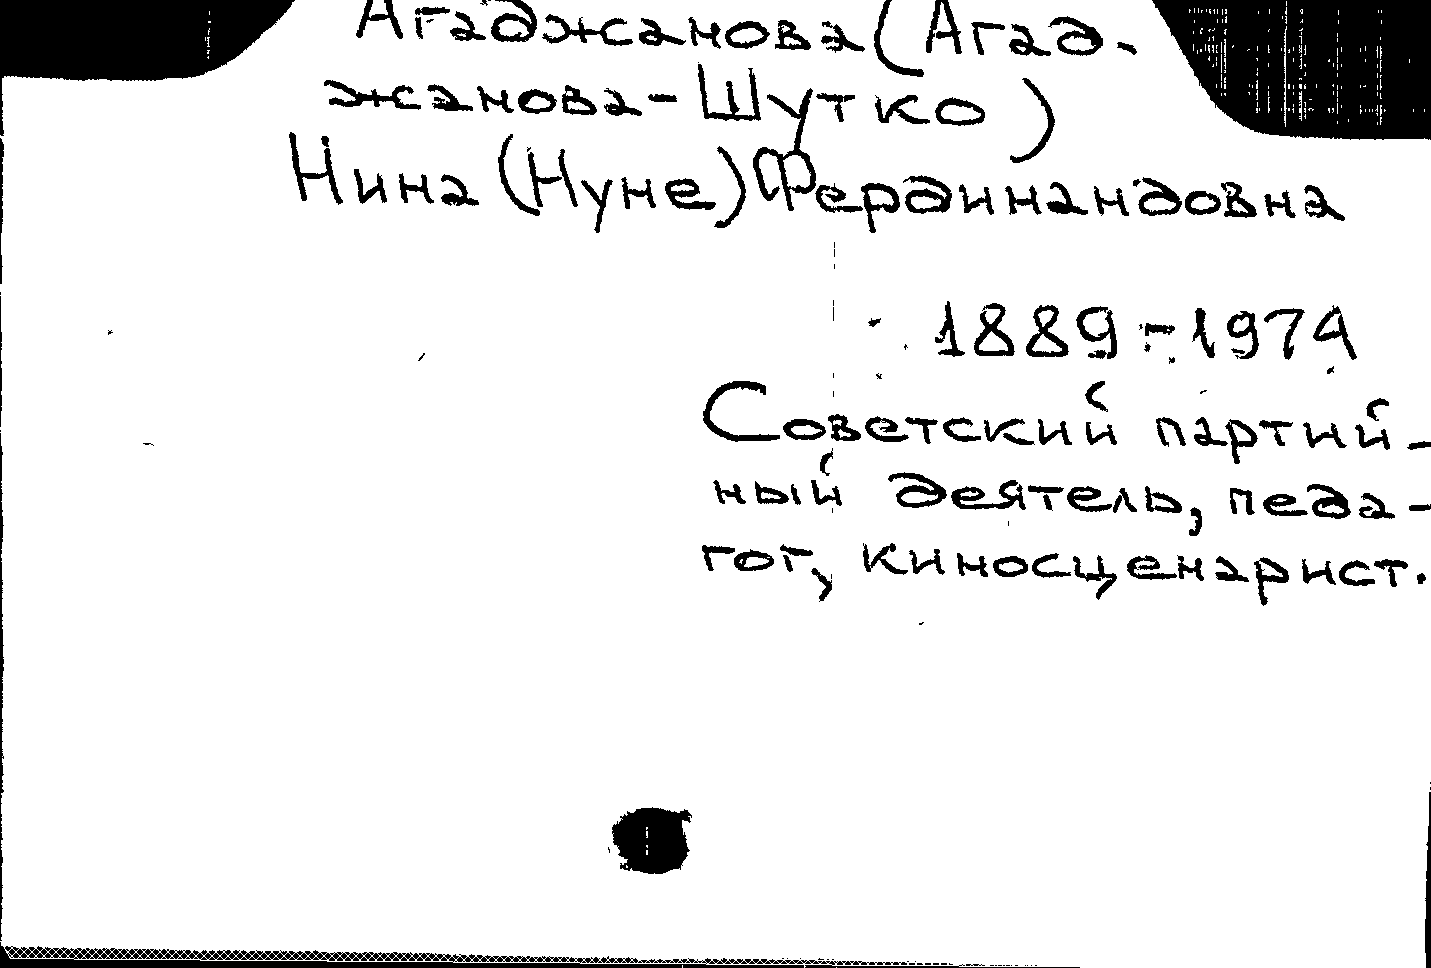 Агаджанова (Агад-
жанова-Шутко)
Нина (Нуне) Фердинандовна
1889-1974
Советский партий-
ный деятель, педа-
гог, киносценарист.